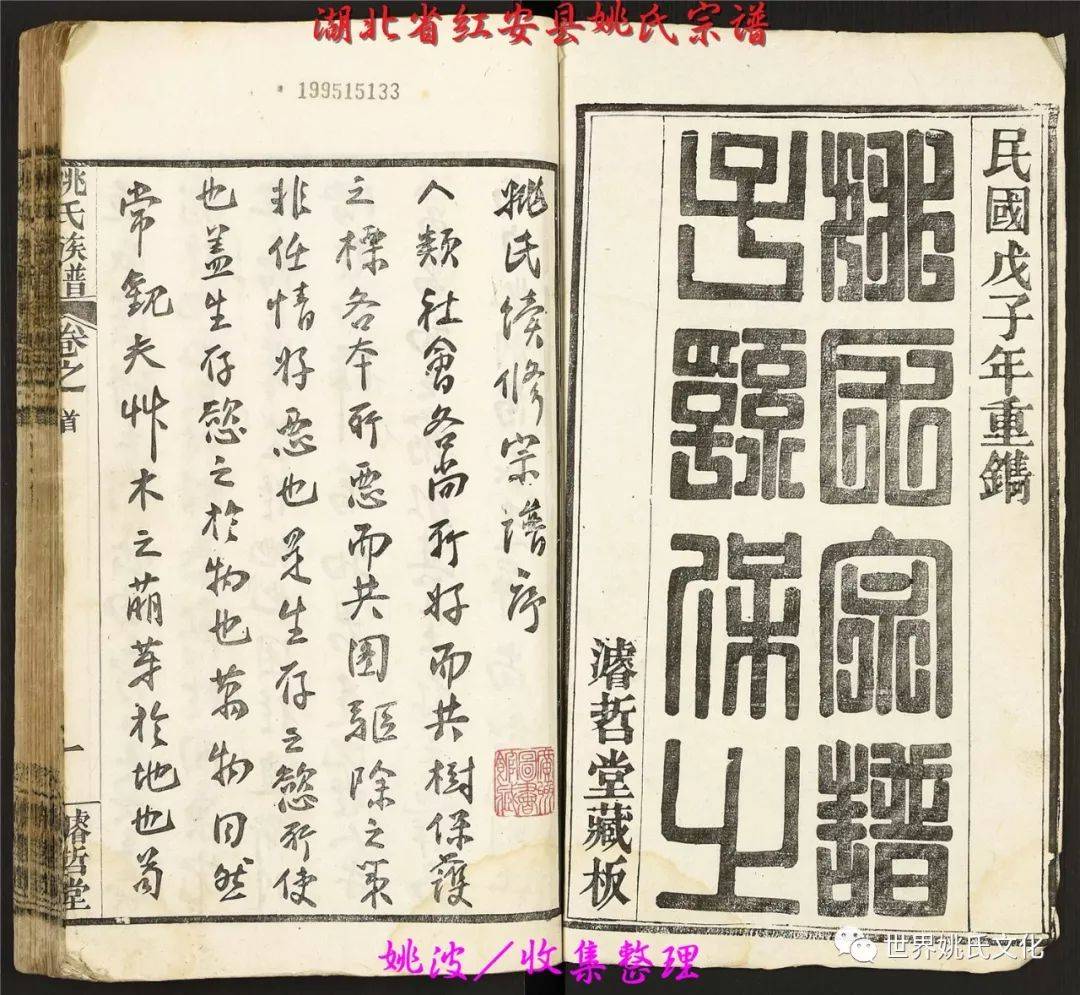 湖北省红安县姚氏宗谱
民國戊子年重鐫
姚氏宗譜
子孫保之
濬哲堂藏板
199515133
姚氏續修宗譜序
人類社會各尚所好而共樹保護
之標各本所惡而共圖驅除之策
非任情好惡也是生存之慾所使
也盖生存慾之於物也萬物同然
常觀夫艸木之萌芽於地也苟
姚氏族譜
卷之首
一
濬哲堂
姚波/收集整理
世界姚氏文化